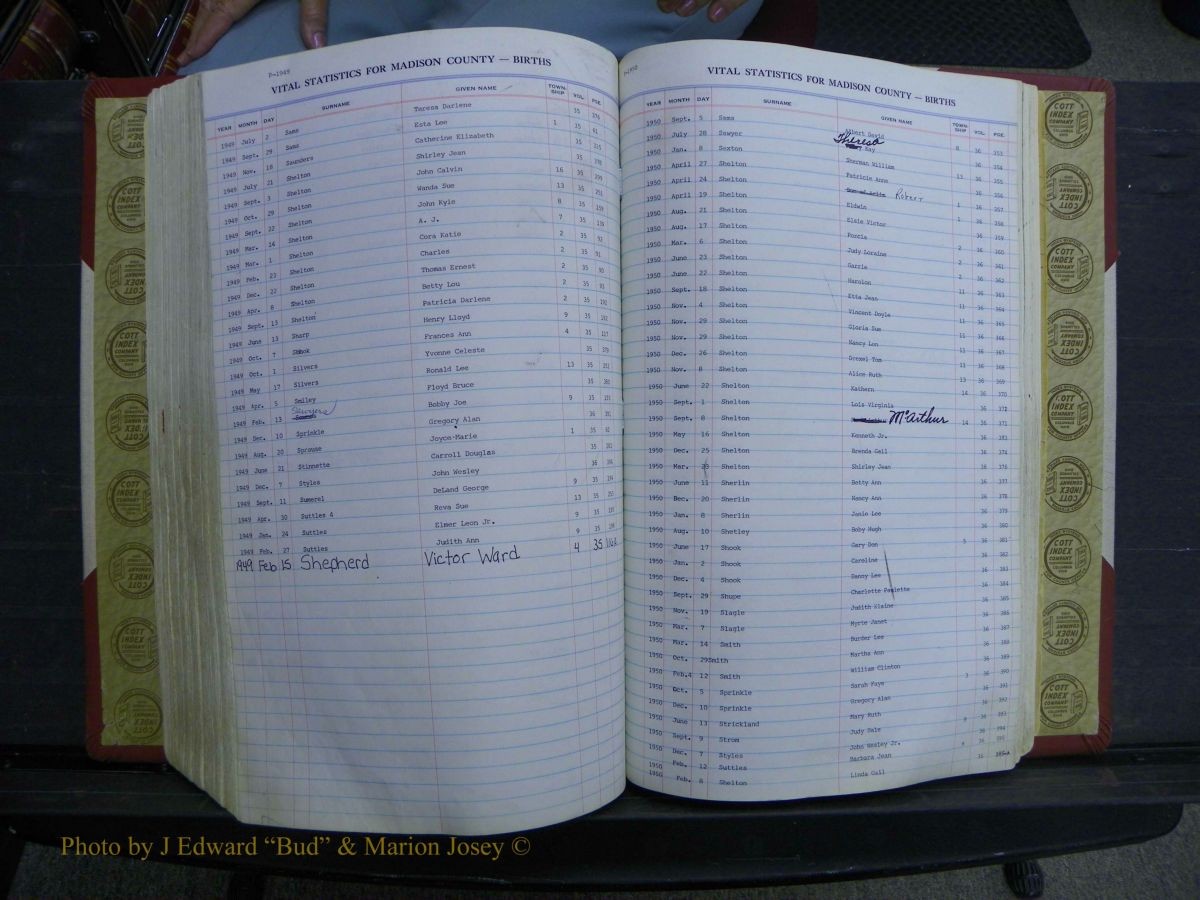 P-1949
VITAL STATISTICS FOR MADISON COUNTY — BIRTHS
YEAR MONTH DAY SURNAME GIVEN NAME TOWN-SHIP VOL. PGE.
1949 July 2 Sams Teresa Darlene 35 376
1949 Sept. 29 Sams Esta Lee 1 35 61
1949 Nov. 18 Saunders Catherine Elizabeth 35
1949 July 21 Shelton Shirley Jean 35
1949 Sept. 3 Shelton John Calvin 16 35
1949 Oct. 29 Shelton Wanda Sue 13 35
1949 Sept. 22 Shelton John Kyle 8 35
1949 Mar. 14 Shelton A. J. 7 35
1949 Mar. 1 Shelton Cora Katie 2 35 92
1949 Feb. 23 Shelton Charles 2 35 91
1949 Dec. 22 Shelton Thomas Ernest 2 35
1949 Apr. 8 Shelton Betty Lou 2 35
1949 Sept. 13 Shelton Patricia Darlene 2 35
1949 June 13 Sharp Henry Lloyd 9 35
1949 Oct. 7 Shook Frances Ann 4 35
1949 Oct. 1 Silvers Yvonne Celeste 35
1949 May 17 Silvers Ronald Lee 13 35
1949 Apr. 5 Smiley Floyd Bruce 35
1949 Feb. 13 Sawyers Bobby Joe 9 35
1949 Dec. 10 Sprinkle Gregory Alan 36
1949 Aug. 20 Sprouse Joyce Marie 1 35
1949 June 21 Stinnette Carroll Douglas 35
1949 Dec. 7 Styles John Wesley 36
1949 Sept. 11 Sumerel DeLand George 9 35
1949 Apr. 30 Suttles 4 Reva Sue 13 35
1949 Jan. 24 Suttles Elmer Leon Jr. 9 35
1949 Feb. 27 Suttles Judith Ann 9 35
1949 Feb. 15 Shepherd Victor Ward 4 35
P-1950
VITAL STATISTICS FOR MADISON COUNTY — BIRTHS
YEAR MONTH DAY SURNAME GIVEN NAME TOWN-SHIP VOL. PGE.
1950 Sept. 5 Sams Albert David 8 36 353
1950 July 28 Sawyer Theresa Kay 36 354
1950 Jan. 8 Sexton Sherman William 13 36 355
1950 April 27 Shelton Patricia Anne 36 356
1950 April 24 Shelton Robert 1 36 357
1950 April 19 Shelton Edwin 1 36 358
1950 Aug. 21 Shelton Elsie Victor 36 359
1950 Aug. 17 Shelton Porcia 2 36 360
1950 Mar. 6 Shelton Judy Loraine 2 36 361
1950 June 23 Shelton Garria 2 36 362
1950 June 22 Shelton Harolon 11 36 363
1950 Sept. 18 Shelton Etta Jean 11 36 364
1950 Nov. 4 Shelton Vincent Doyle 11 36 365
1950 Nov. 29 Shelton Gloria Sue 11 36 366
1950 Nov. 29 Shelton Nancy Lon 11 36 367
1950 Dec. 26 Shelton Drexel Tom 36 368
1950 Nov. 8 Shelton Alice Ruth 13 36 369
1950 June 22 Shelton Kathern 14 36 370
1950 Sept. 1 Shelton Lois Virginia 36 372
1950 Sept. 8 Shelton McArthur 14 36 371
1950 May 16 Shelton Kenneth Jr. 36
1950 Dec. 25 Shelton Brenda Gail 36
1950 Mar. Shelton Shirley Jean 36
1950 June 11 Sherlin Betty Ann 36 377
1950 Dec. 20 Sherlin Nancy Ann 36 378
1950 Jan. 8 Sherlin Janie Lee 36 379
1950 Aug. 10 Shetley Boby Hugh 36 380
1950 June 17 Shook Gary Don 5 36 381
1950 Jan. 2 Shook Caroline 36 382
1950 Dec. 4 Shook Danny Lee 36 383
1950 Sept. 29 Shupe Charlotte Paulette 36 384
1950 Nov. 19 Slagle Judith Elaine 36 385
1950 Mar. 7 Slagle Myrle Janet 36 386
1950 Mar. 14 Smith Burder Lee 36 387
1950 Oct. 29 Smith Martha Ann 36
1950 Feb.4 12 Smith William Clinton 3 36 390
1950 Oct. 5 Sprinkle Sarah Faye 36 391
1950 Dec. 10 Sprinkle Gregory Alan 36 392
1950 June 13 Strickland Mary Ruth 36 393
1950 Sept. 9 Strom Judy Dale 36 394
1950 Dec. 7 Styles John Wesley Jr. 36 395
1950 Feb. 12 Suttles Barbara Jean 36
1950 Feb. 8 Shelton Linda Gail
COTT INDEX COMPANY COLUMBUS OHIO
Photo by J Edward “Bud” & Marion Josey ©